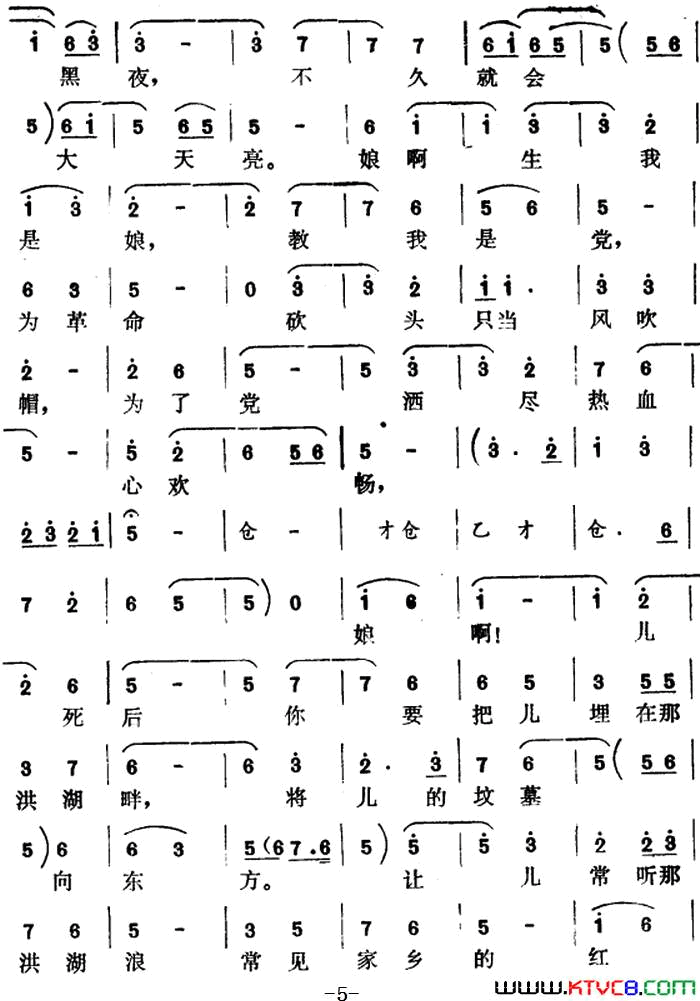 i 6 3 | 3 - | 3 7 | 7 7 | 6 i 6 5 | 5 ( 5 6 |
黑 夜， 不 久 就 会
5 ) 6 i | 5 6 5 | 5 - | 6 i | i 3 | 3 2 |
大 天 亮。 娘 啊 生 我
i 3 | 2 - | 2 7 | 7 6 | 5 6 | 5 - |
是 娘， 教 我 是 党，
6 3 | 5 - | 0 3 | 3 2 | i i . | 3 3 |
为 革 命 砍 头 只 当 风 吹
2 - | 2 6 | 5 - | 5 3 | 3 2 | 7 6 |
帽， 为 了 党 洒 尽 热 血
5 - | 5 2 | 6 5 6 | 5 - | ( 3 . 2 | i 3 |
心 欢 畅，
2 3 2 i | 5 - | 仓 - | 才 仓 | 乙 才 | 仓 . 6 |
7 2 | 6 5 | 5 ) 0 | i 6 | i - | i 2 |
娘 啊! 儿
2 6 | 5 - | 5 7 | 7 6 | 6 5 | 3 5 5 |
死 后 你 要 把 儿 埋 在 那
3 7 | 6 - | 6 3 | 2 . 3 | 7 6 | 5 ( 5 6 |
洪 湖 畔， 将 儿 的 坟 墓
5 ) 6 | 6 3 | 5 ( 6 7 . 6 | 5 ) 5 | 5 3 | 2 2 3 |
向 东 方。 让 儿 常 听 那
7 6 | 5 - | 3 5 | 7 6 | 5 - | i 6 |
洪 湖 浪 常 见 家 乡 的 红
-5-
www.KTVC8.com